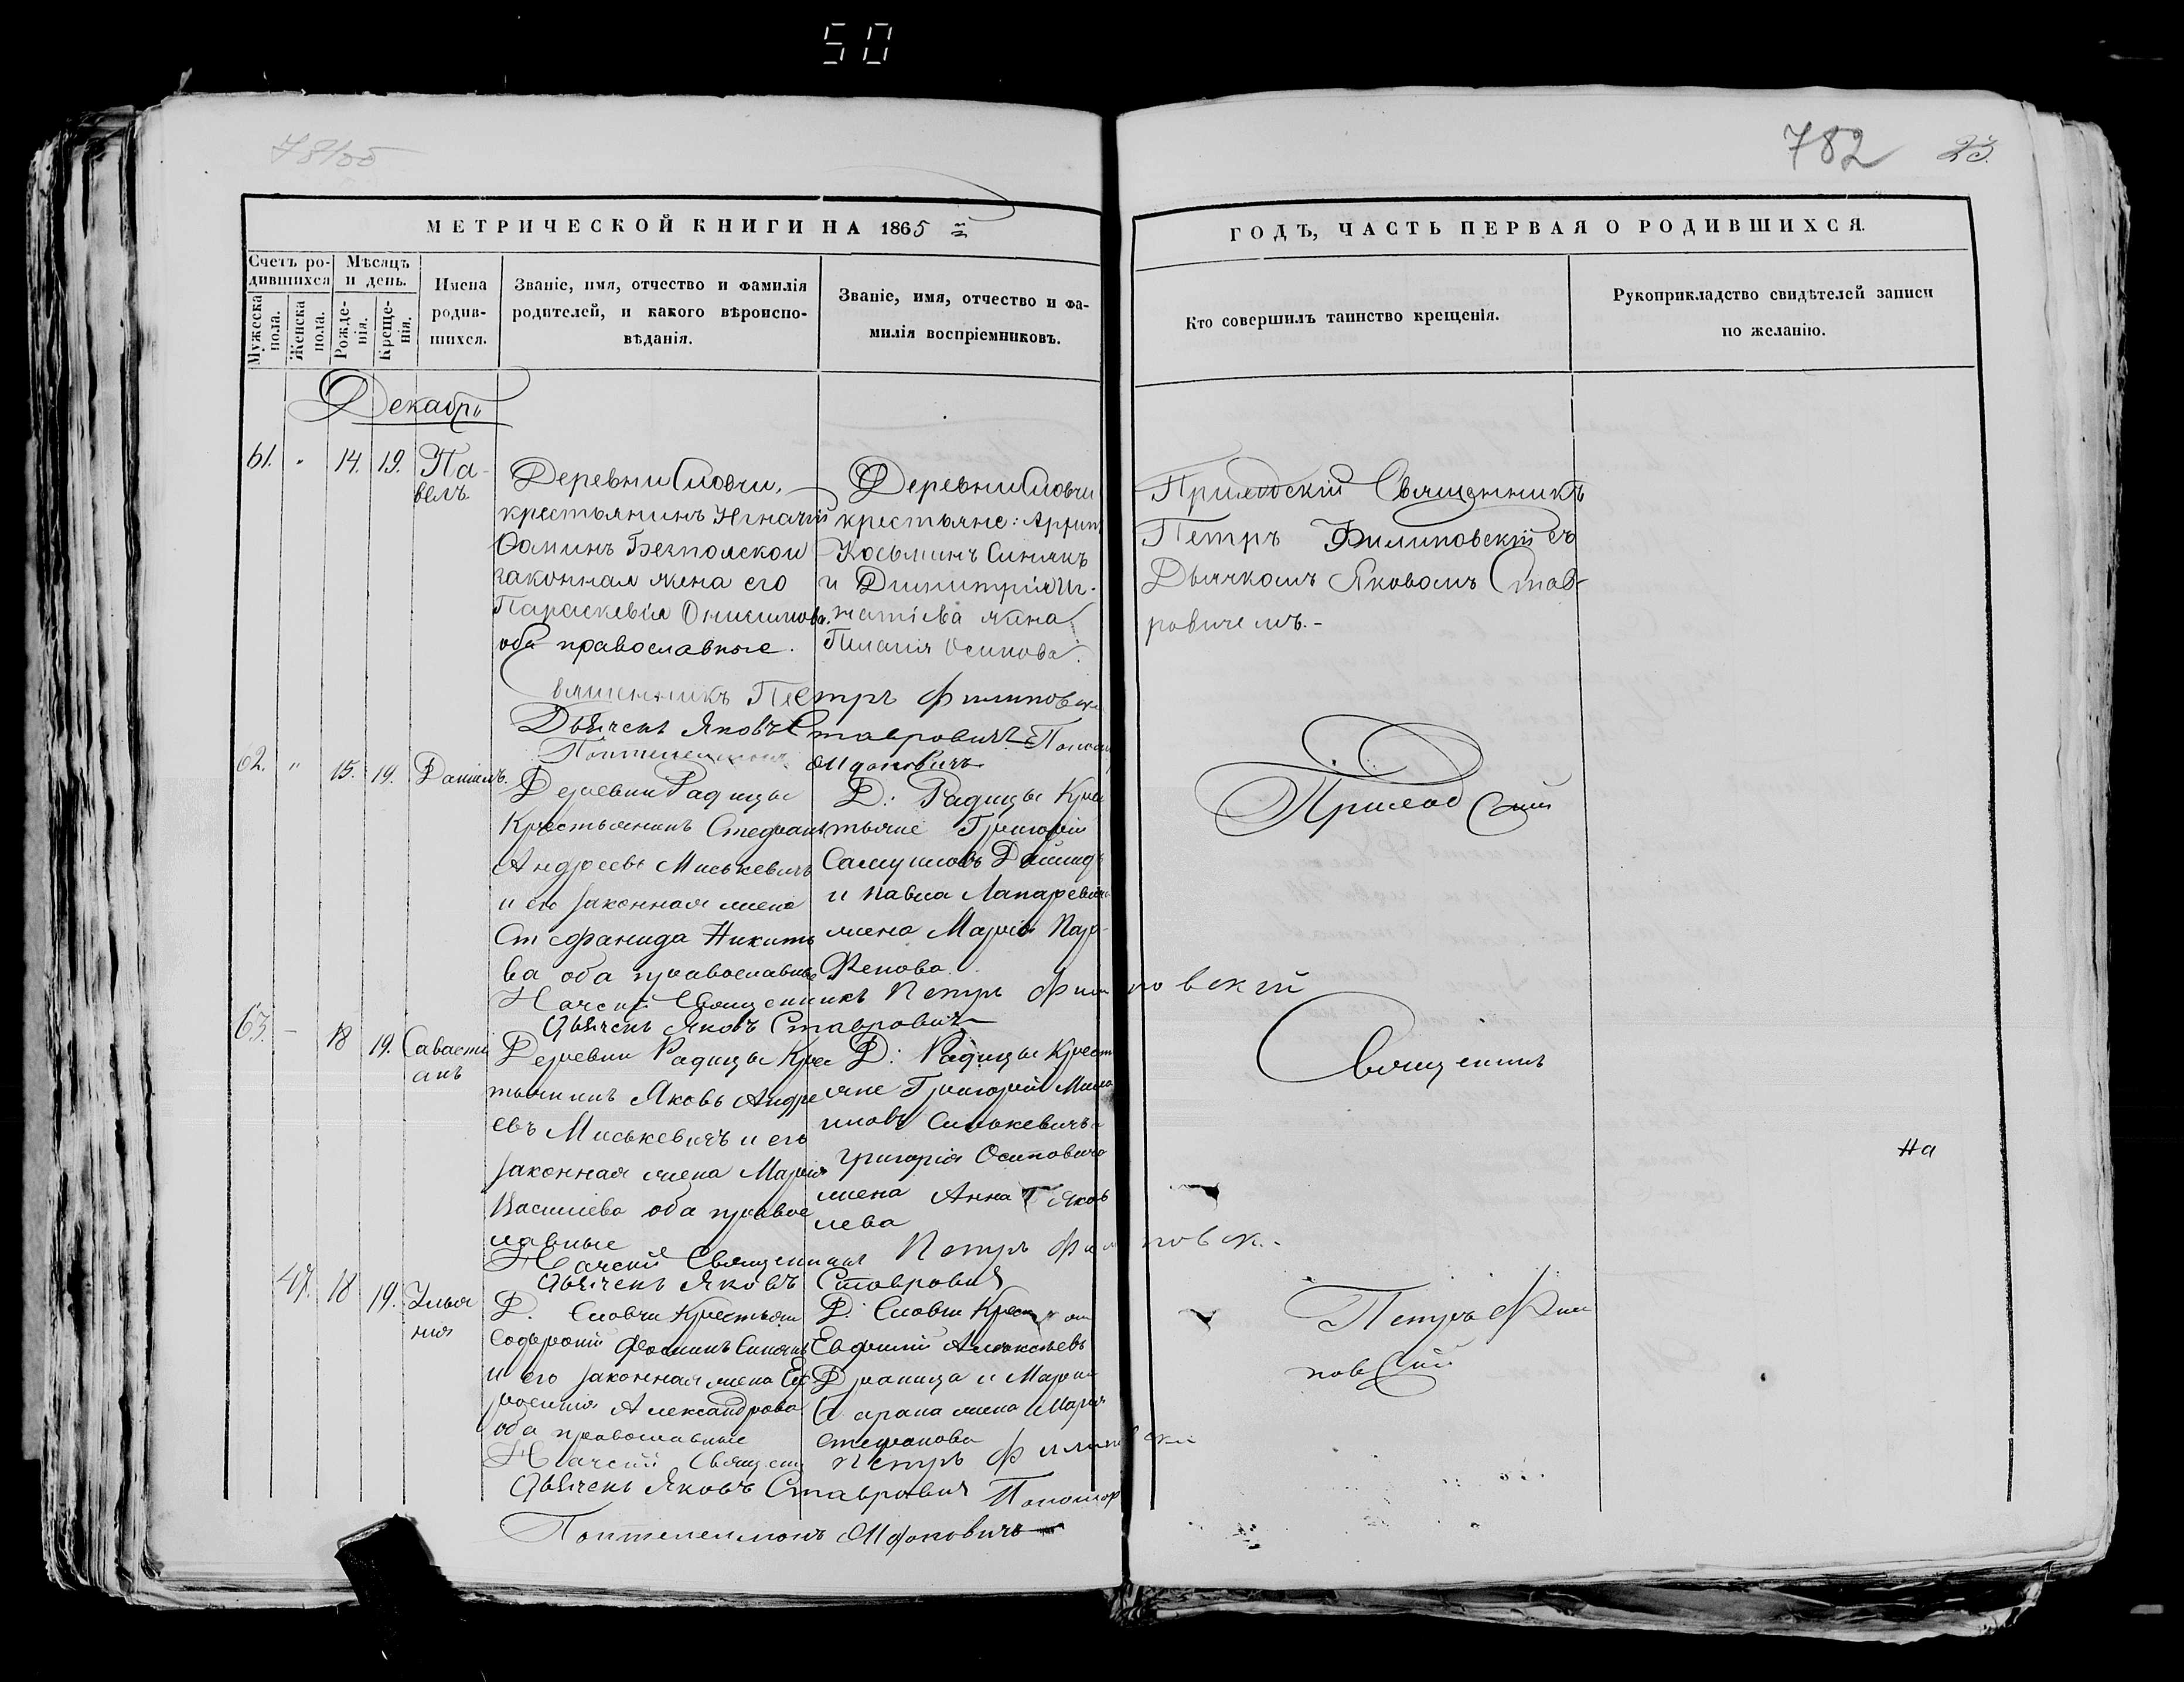 50
781об
782 23.
МЕТРИЧЕСКОЙ КНИГИ НА 1865 й
ГОДЪ, ЧАСТЬ ПЕРВАЯ О РОДИВШИХСЯ.
Счетъ родившихся
Мужеска пола.
Женска пола.
Мѣсяцъ и день.
Рожденія.
Крещенія.
Имена родившихся.
Званіе, имя, отчество и фамилія
родителей, и какого вѣроиспо-
вѣданія.
Званіе, имя, отчество и фа-
милія воспріемниковъ.
Кто совершилъ таинство крещенія.
Рукоприкладство свидѣтелей записи
по желанію.
Декабрь
61. " 14. 19. Па-
велъ
Деревни Словчи,
крестьянинъ Игнатій
Фоминъ
законная жена его
Параскевія Онисимова.
оба православные.
Деревни Словчи
крестьяне:
Косьминъ Синякъ
и Димитрія Иг-
натіева жена
Пелагія Осипова.
Приходскій Священникъ
Петръ Филиповскій съ
Дьячкомъ Яковомъ Став-
ровичемъ.-
Священникъ Петръ Филиповск
Дьячекъ Яковъ Ставровичъ Поном
62. " 15. 19. Даніилъ.
Деревни Радицы
Крестьянинъ Стефанъ
Андреевъ Миськевичъ
и его законная жена
Стефанида Никито
ва оба православные
Д: Радицы Крес
тьяне Григорій
Самуиловъ
и Павла
жена Марія Пар-
фенова.
Приход ской
Начскій Священникъ Петръ Филиповскій
Дьячекъ Яковъ Ставровичъ
63. - 18 19. Савасти
анъ
Деревни Радицы Крес
тьянинъ Яковъ Андре
евъ Миськевичъ и его
законная жена Марія
Васильева оба правос
лавные
Д: Радицы Крест
яне Григорій
Синкевичъ
Григорія Осиповича
жена Анна Яков
лева
Священникъ
На
Начскій Священникъ Петръ Филиповск.-
Дьячекъ Яковъ Ставровичъ
47. 18 19. Ульяния
Д. Словчи Крестьян
Софроній Фоминъ Синякъ
и его законная жена Еф
росинія Александрова
оба православные
Д: Словчи
Евфимій Алексѣевъ
жена Марія
Стефанова
Петръ Фили
повскій
Начскій Священ Петръ Филиповскій
Дьячекъ Яковъ Ставровичъ Пономар
Пантелеимонъ